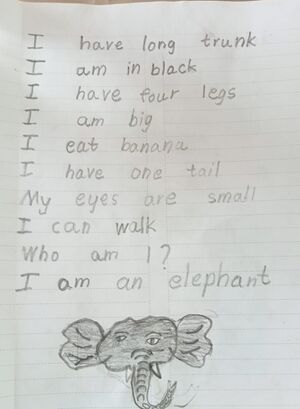 I have long trunk
I am in black
I have four legs
I am big
I eat banana
I have one tail
My eyes are small
I can walk
Who am I?
I am an elephant